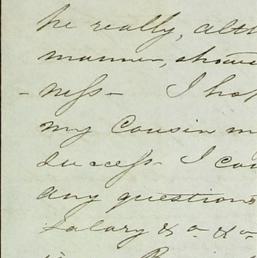 he really, alth
manner, showe
- ness - I hop
my Cousin m
success - I cou
any question
Salary &c. &c.